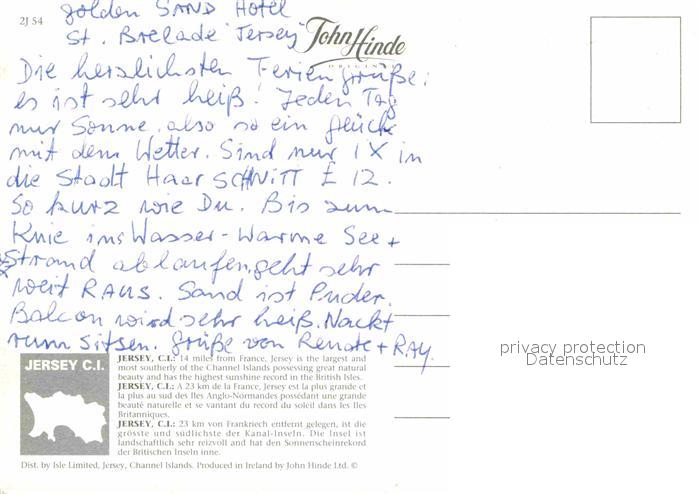 2J 54
golden SAND Hotel
St. Brelade "Jersey"
John Hinde
ORIGINAL
Die herzlichsten Feriengrüße:
es ist sehr heiß! Jeden Tag
nur Sonne, also so ein glück
mit dem Wetter. Sind nur 1X in
die Stadt Haar SCHNiTT £ 12.
So kurz wie Du. Bis zum
Knie ins Wasser - Warme See +
Strand ablaufen, geht sehr
weit RAUS. Sand ist Puder.
Balcon wird sehr heiß. Nackt
rum sitsen. Grüße von Renate + RAY
privacy protection
Datenschutz
JERSEY C.I.
JERSEY, C.I.: 14 miles from France, Jersey is the largest and
most southerly of the Channel Islands possessing great natural
beauty and has the highest sunshine record in the British Isles.
JERSEY, C.I.: A 23 km de la France, Jersey est la plus grande et
la plus au sud des Iles Anglo-Normandes possédant une grande
beauté naturelle et se vantant du record du soleil dans les Iles
Britanniques.
JERSEY, C.I.: 23 km von Frankriech entfernt gelegen, ist die
grösste und südlichste der Kanal-Inseln. Die Insel ist
landschaftlich sehr reizvoll and hat den Sonnenscheinrekord
der Britischen Inseln inne.
Dist. by Isle Limited, Jersey, Channel Islands. Produced in Ireland by John Hinde Ltd. ©